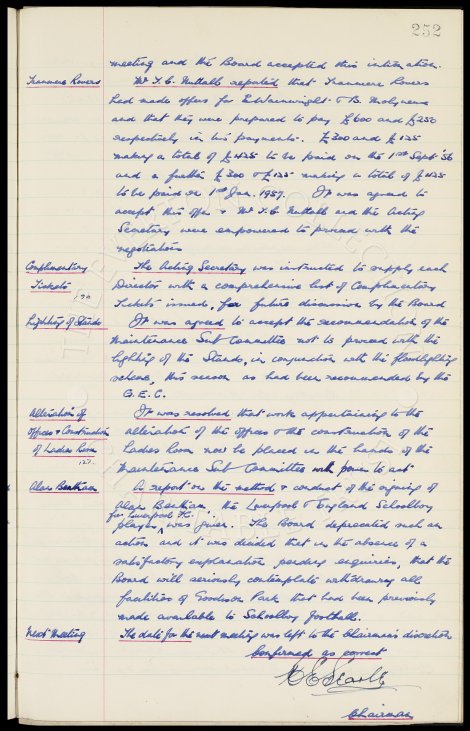 252
meeting and the Board accepted this intimation.
Tranmere Rovers
Mr. T. C. Nuttall reported that Tranmere Rovers
had made offers for E. Wainwright & B. Molyneux
and that they were prepared to pay £600 and £250
respectively in two payments. £300 and £125
making a total of £425 to be paid on the 1st Sept '56
and a further £300 & £125 making a total of £425
to be paid on 1st Jan. 1957. It was agreed to
accept this offer & Mr T. C. Nuttall and the Acting
Secretary were empowered to proceed with the
negotiations
Complimentary
Tickets
The Acting Secretary was instructed to supply each
Director with a comprehensive list of Complimentary
Tickets issued, for future discussion by the Board
Lighting of Stands
It was agreed to accept the recommendation of the
Maintenance Sub Committee not to proceed with the
lighting of the Stands, in conjunction with the floodlighting
scheme, this season as had been recommended by the
G.E.C.
Alteration of
Offices & Construction
of Ladies Room
It was resolved that work appertaining to the
alteration of the offices & the construction of the
Ladies Room now be placed in the hands of the
Maintenance Sub Committee with power to act
Alan Bentham
A report on the method & conduct of the signing of
Alan Bentham, the Liverpool & England Schoolboy
for Liverpool F.C.
player, was given. The Board deprecated such an
action and it was decided that in the absence of a
satisfactory explanation pending enquiries, that the
Board will seriously contemplate withdrawing all
facilities of Goodison Park that had been previously
made available to Schoolboy football.
Next Meeting
The date for the next meeting was left to the Chairman's discretion
Confirmed as correct
Chairman